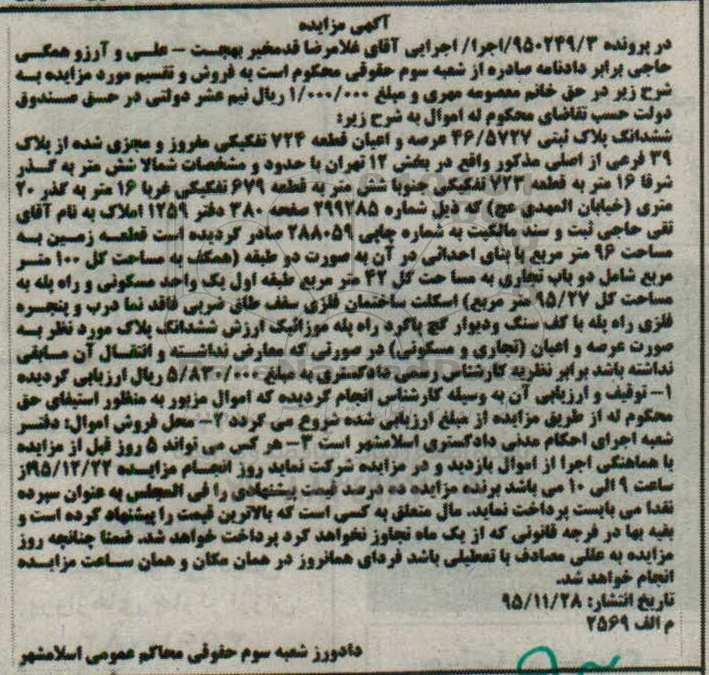 آگهی مزایده
در پرونده ۹۵۰۲۴۹/۳/اجرا/ اجرایی آقای غلامرضا قدمخیر بهجت – علی و آرزو همگی
حاجی برابر دادنامه صادره از شعبه سوم حقوقی محکوم است به فروش و تقسیم مورد مزایده به
شرح زیر در حق خانم معصومه مهری و مبلغ ۱/۰۰۰/۰۰۰ ریال نیم عشر دولتی در حق صندوق
دولت حسب تقاضای محکوم له اموال به شرح زیر:
ششدانگ پلاک ثبتی ۴۶/۵۷۲۷ عرصه و اعیان قطعه ۷۲۴ تفکیکی مفروز و مجزی شده از پلاک
۳۹ فرعی از اصلی مذکور واقع در بخش ۱۲ تهران با حدود و مشخصات شمالا شش متر به گذر
شرقا ۱۶ متر به قطعه ۷۲۳ تفکیکی جنوبا شش متر به قطعه ۶۷۹ تفکیکی غربا ۱۶ متر به گذر ۲۰
متری (خیابان المهدی عج) که ذیل شماره ۲۹۹۲۸۵ صفحه ۳۸۰ دفتر ۱۲۵۹ املاک به نام آقای
تقی حاجی ثبت و سند مالکیت به شماره چاپی ۲۸۸۰۵۹ صادر گردیده است قطعه زمین به
مساحت ۹۶ متر مربع با بنای احداثی در آن به صورت دو طبقه (همکف به مساحت کل ۱۰۰ متر
مربع شامل دو باب تجاری به مسا حت کل ۴۲ متر مربع طبقه اول یک واحد مسکونی و راه پله به
مساحت کل ۹۵/۲۷ متر مربع) اسکلت ساختمان فلزی سقف طاق ضربی فاقد نما درب و پنجره
فلزی راه پله با کف سنگ ودیوار گچ پاگرد راه پله موزائیک ارزش ششدانگ پلاک مورد نظر به
صورت عرصه و اعیان (تجاری و مسکونی) در صورتی که معارض نداشته و انتقال آن مابقی
نداشته باشد برابر نظریه کارشناس رسمی دادگستری به مبلغ ۵/۸۳۰/۰۰۰ ریال ارزیابی گردیده
۱– توقیف و ارزیابی آن به وسیله کارشناس انجام گردیده که اموال مزبور به منظور استیفای حق
محکوم له از طریق مزایده از مبلغ ارزیابی شده شروع می گردد ۲– محل فروش اموال: دفتر
شعبه اجرای احکام مدنی دادگستری اسلامشهر است ۳– هر کس می تواند ۵ روز قبل از مزایده
با هماهنگی اجرا از اموال بازدید و در مزایده شرکت نماید روز انجام مزایده ۹۵/۱۲/۲۲از
ساعت ۹ الی ۱۰ می باشد برنده مزایده ده درصد قیمت پیشنهادی را فی المجلس به عنوان سپرده
نقدا می بایست پرداخت نماید. مال متعلق به کسی است که بالاترین قیمت را پیشنهاد کرده است و
بقیه بها در فرجه قانونی که از یک ماه تجاوز نخواهد کرد پرداخت خواهد شد. ضمنا چنانچه روز
مزایده به عللی مصادف با تعطیلی باشد فردای همانروز در همان مکان و همان ساعت مزایده
انجام خواهد شد.
تاریخ انتشار: ۹۵/۱۱/۲۸
م الف ۲۵۶۹
دادورز شعبه سوم حقوقی محاکم عمومی اسلامشهر